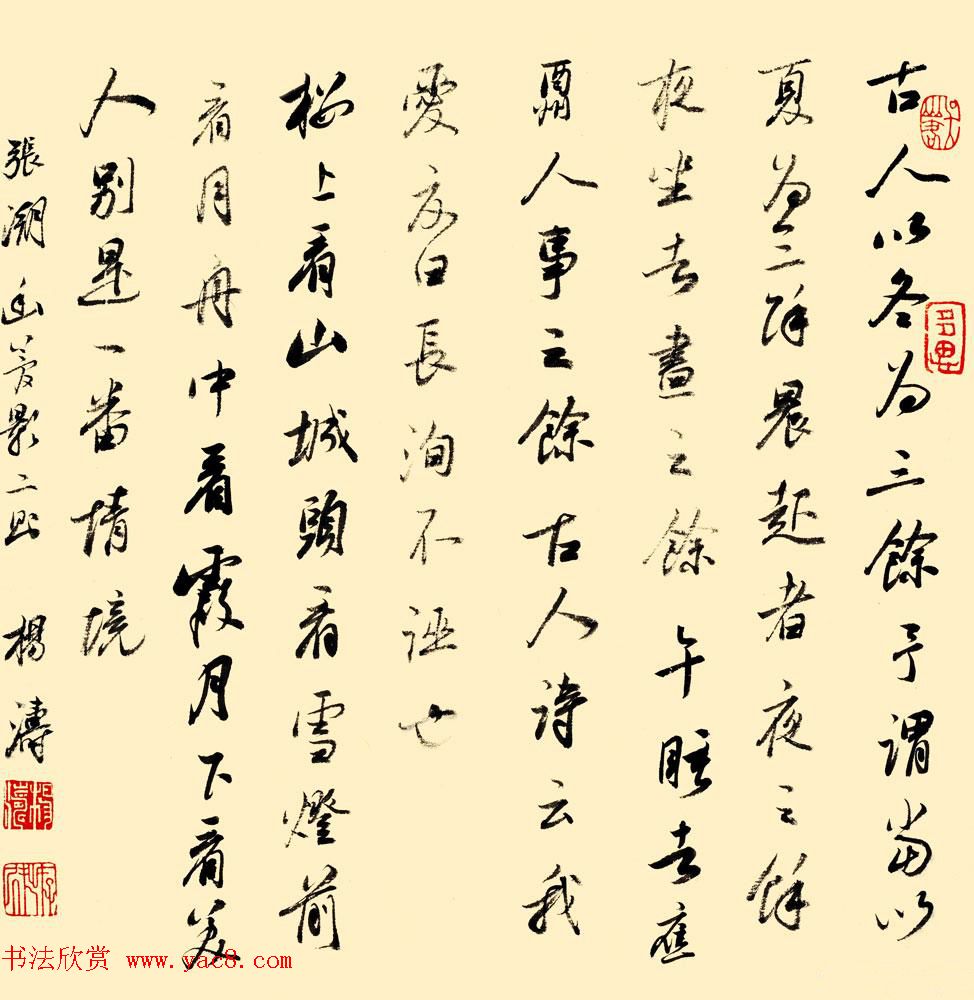 古人以冬為三餘予謂當以
夏為三餘晨起者夜之餘
夜坐者晝之餘午睡者應
酬人事之餘古人詩云我
愛夏日長洵不誣也
樓上看山城頭看雪燈前
看月舟中看霞月下看美
人別是一番情境
張潮幽夢影二則 楊濤
书法欣赏 www.yac8.com